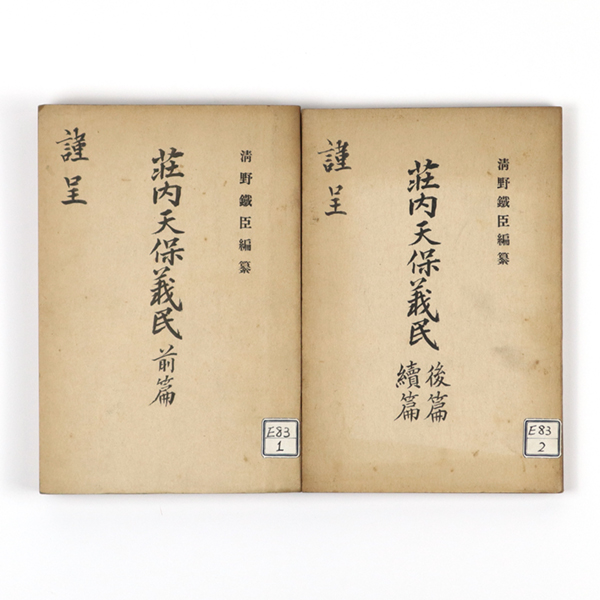 清野鐵臣編纂
荘内天保義民 前篇
謹呈
E83
1
清野鐵臣編纂
荘内天保義民 後篇
續篇
謹呈
E83
2